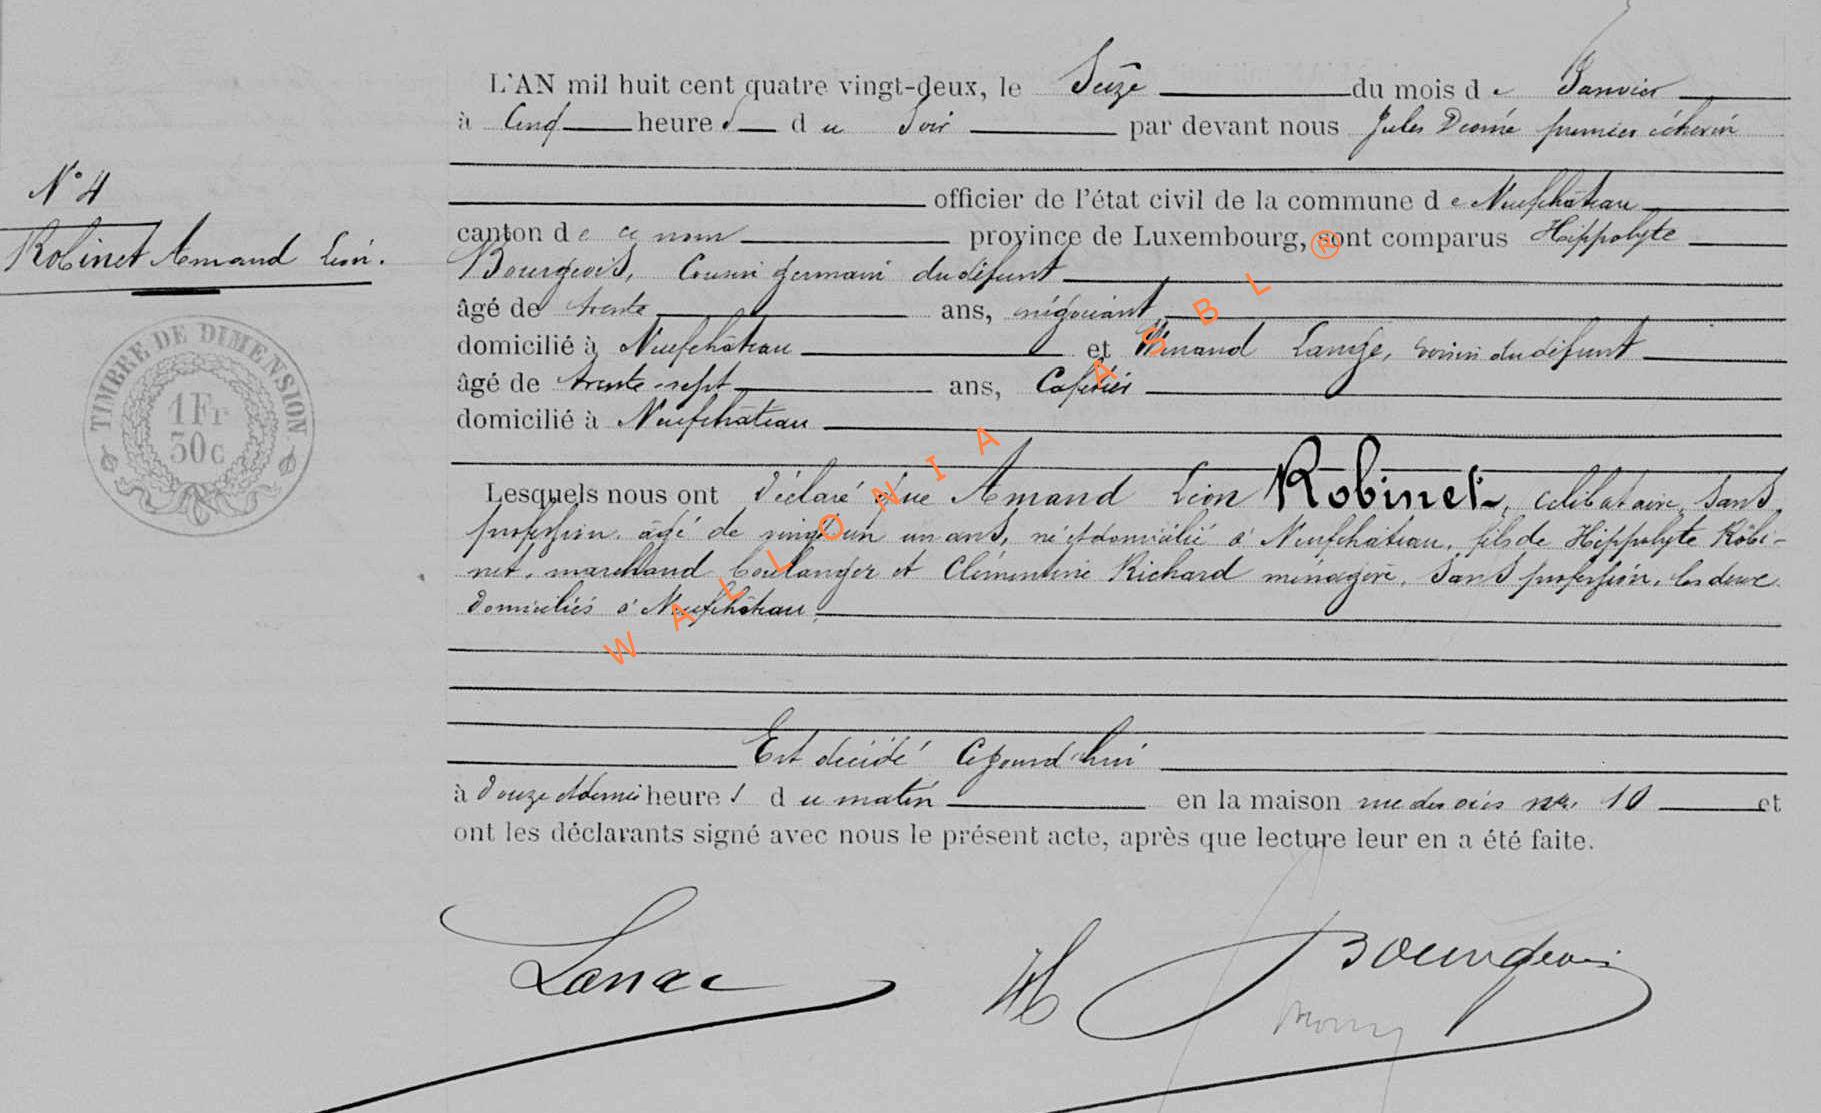 L'AN mil huit cent quatre vingt-deux, le Seize du mois de Janvier
à Cinq heures du Soir par devant nous Jules premier échevin
N° 4
officier de l'état civil de la commune de Neufchâteau
Robinet Amand Léon.
canton de ce nom province de Luxembourg, sont comparus Hippolyte
Bourgeois, Cousin germain du défunt
âgé de trente ans, négociant
domicilié à Neufchâteau et Lange, voisin du défunt
âgé de trente-sept ans, Cafetier
domicilié à Neufchâteau
TIMBRE DE DIMENSION
1 Fr
30c
Lesquels nous ont déclaré que Amand Léon Robinet, celibataire, sans
profession, âgé de vingt un ans, né et domicilié à Neufchâteau, fils de Hippolyte Robi-
net, marchand boulanger et Clémentine Richard ménagère, sans profession, les deux
domiciliés à Neufchâteau
Est décédé Cejourd'hui
à douze et demie heures du matin en la maison rue des 10 et
ont les déclarants signé avec nous le présent acte, après que lecture leur en a été faite.
Lange H Bourgeois
WALLONIA ASBL ®